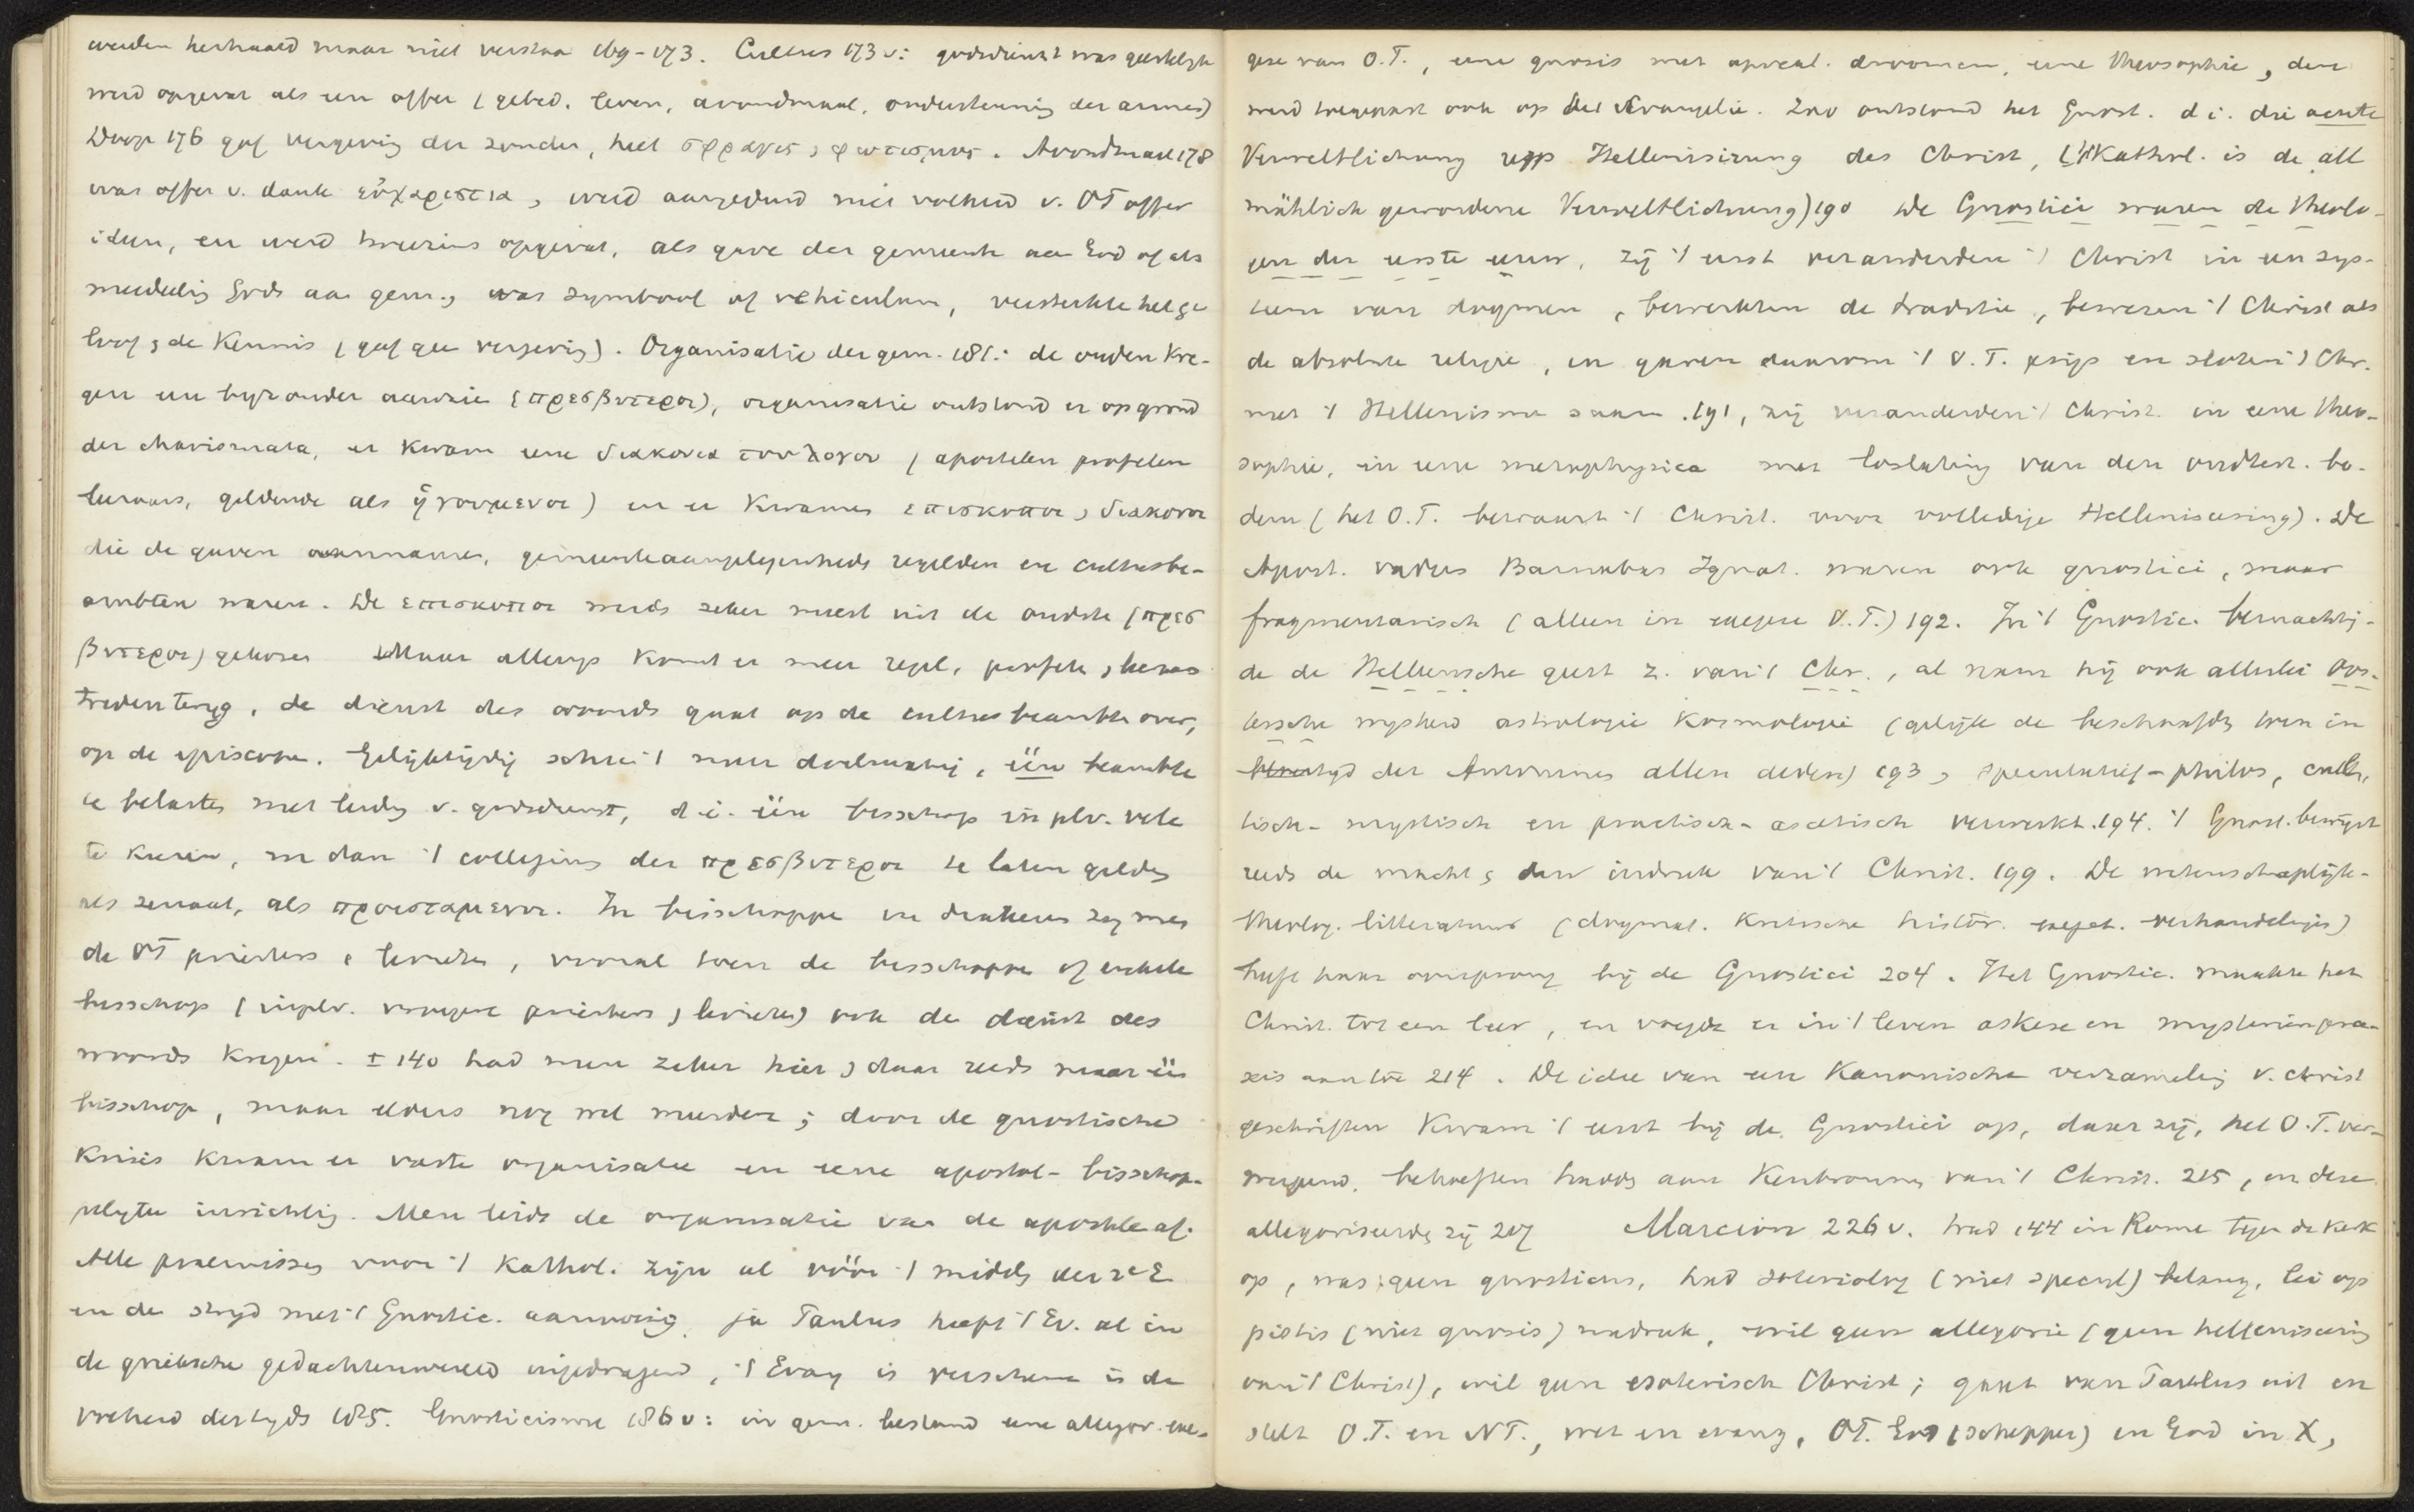 werden herhaald maar niet verstaan 169-173. Cultus 173 v: godsdienst was geestelyk
werd opgevat als een offer (gebed, leven, avondmaal, ondersteuning der armen)
Doop 176 gaf vergeving der zonden, heet σφραγις, φωτισμος. Avondmaal 178
was offer v. dank εὐχαριστια, werd aangeduid met v. OT offer
ideen, en werd opgevat, als gave der gemeente aan God of als
mededelig Gods aan gem., was symbool of vehiculum, versterkte het ge
loof, de Kennis (gaf geen vergevig). Organisatie der gem. 181: de ouden Kre-
gen een byzonder aanzien (πρεσβυτεροι), organisatie ontstond er op grond
der charismata, er Kwam eene διακονια του λογου (apostelen profeten
leeraars, geldende als ἡγουμενοι) en er Kwamen επισκοποι, διακονοι
die de gaven aannamen, gemeenteaangelegenheds regelden en cultusbe-
ambten waren. De επισκοποι werds zeker meest uit de oudste (πρεσ
βυτεροι) gekozen Maar allengs Komt er meer regel, profete, leraas
treden terug, de dienst des woords gaat op de cultusbeambte over,
op de episcopen. Gelyktijdig scheen 't meer doelmatig, één beambte
te belasten met leidg v. godsdienst, d.i. één bisschop in plv. vele
te Kiezen, en dan 't collegium der πρεσβυτεροι te laten gelden
als senaat, als προισταμενοι. In bisschoppe en diakens zag men
de OT priesters & levieten, vooral toen de bisschoppen of enkele
bisschop (inplv. vroegere priesters, levieten) ook de dienst des
woords Kregen. ± 140 had men zeker hier, daar reeds maar één
bisschop, maar elders nog wel meerdere; door de gnostische
Krisis Kwam er vaste organisatie en eene apostol-bisschop-
pelyke inrichtig. Men leids de organisatie van de apostele af.
Alle praemissen voor 't Kathol. zijn al vóór 't midds der 2e E
en de stryd met 't Gnostic. aanwezig, ja Paulus heeft 't Ev. al in
de grieksche gedachtenwereld ingedragen, 't Evang is verschene in de
volheid des tyds 185. Gnosticisme 186 v: in gem. bestond eene allegor. exe-
gese van O.T., eene gnosis met apocal. droomen, eene theosophie, deze
werd toegepast ook op het Evangelie. Zoo ontstond het Gnost. d.i. die acute
Verweltlichung resp Hellenisirung des Christ, ('t Kathol. is de all
mählich gewordene Verweltlichung) 190 De Gnostici waren de theolo-
gen der eerste eeuw, zij 't eerst veranderden 't Christ in een sys-
teem van dogmen, bewerkten de traditie, bewezen 't Christ als
de absolute religie, en gaven daarom 't O.T. prijs en sloten 't Chr.
met 't Hellenisme saam. 191, zij veranderden 't Christ. in eene theo-
sophie, in eene metaphysica met loslating van den oudtest. bo-
dem (het O.T. bewaart 't Christ. voor volledige Hellenisering). De
Apost. vaders Barnabas Ignat. waren ook gnostici, maar
fragmentarisch (alleen in exegese O.T.) 192. In 't Gnostic. bemachtig-
de de Hellensche geest z. van 't Chr., al nam hij ook allerlei Oos-
tersche mysteri astrologie Kosmologie (gelijk de beschaafds toen in
tyd der Antonines allen deden) 193, speculatief-philos, cultu,
tisch-mystisch en practisch-ascetisch verwerkt. 194. 't Gnost. bewijst
reeds de macht & den indruk van 't Christ. 199. De wetenschaplijk-
theolog. litteratuur (dogmat. Kritische histor. exeget. verhandeligen)
heeft haar oorsprong bij de Gnostici 204. Het Gnostic. maakte het
Christ. tot een leer, en voegde er in 't leven askese en mysterienpra-
xis aan toe 214. De idee van een Kanonische verzameling v. christ
geschriften Kwam 't eerst bij de Gnostici op, daar zij, het O.T. ver-
werpend, behoeften hadds aan Kenbronnen van 't Christ. 215, en deze
allegoriseerds zij 207 Marcion 226 v. trad 144 in Rome tegen de Kerk
op, was geen gnosticus, had soteriolog (niet specul) belang, lei op
pistis (niet gnosis) nadruk, wil geen allegorie (geen hellenisering
van 't Christ), wil geen esoterisch Christ; gaat van Paulus uit en
stelt O.T. en N.T., wet en evang, OT. God (schepper) en God in X,